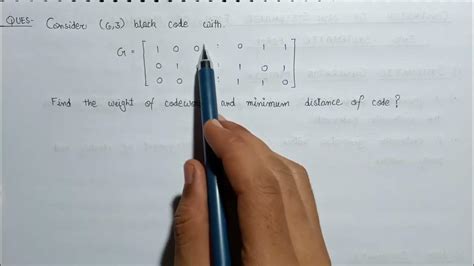 QUES- Consider (6,3) block code with
G = [ 1 0 0 : 0 1 1
0 1 : 1 0 1
0 0 : 1 1 0 ]
Find the weight of and minimum distance of code ?